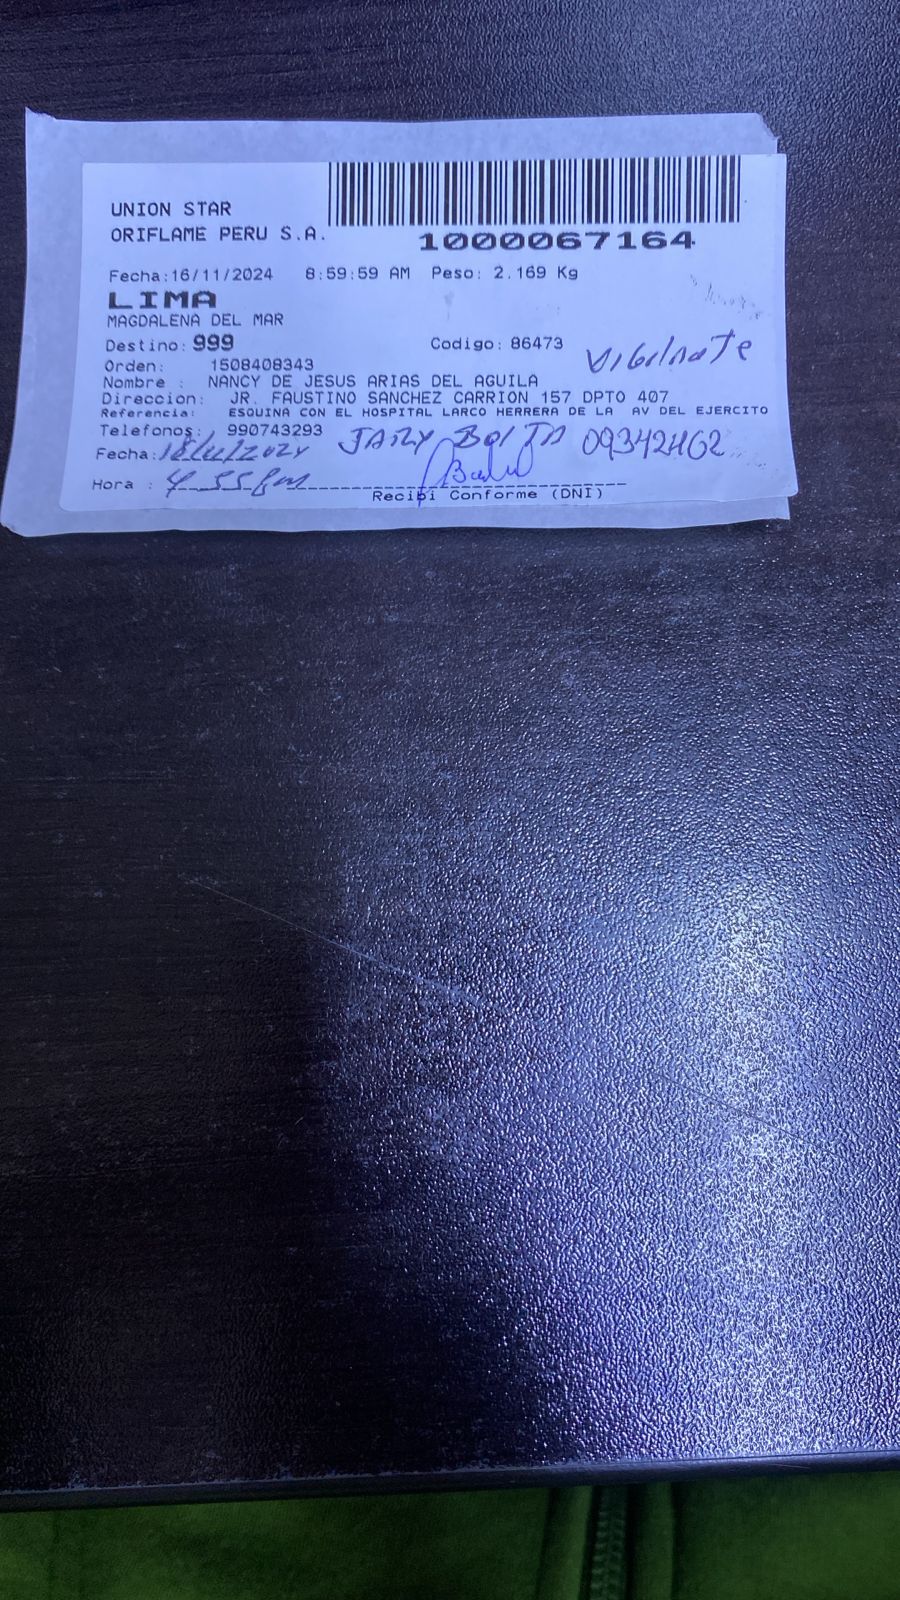 UNION STAR
ORIFLAME PERU S.A.
1000067164
Fecha:16/11/2024 8:59:59 AM Peso: 2.169 Kg
LIMA
MAGDALENA DEL MAR
Destino: 999 Codigo: 86473
Vigilnate
Orden: 1508408343
Nombre : NANCY DE JESUS ARIAS DEL AGUILA
Direccion: JR. FAUSTINO SANCHEZ CARRION 157 DPTO 407
Referencia: ESQUINA CON EL HOSPITAL LARCO HERRERA DE LA AV DEL EJERCITO
Telefonos: 990743293
Fecha: 18/11/2024 09342462
Hora : 4 55 pm
Recibi Conforme (DNI)